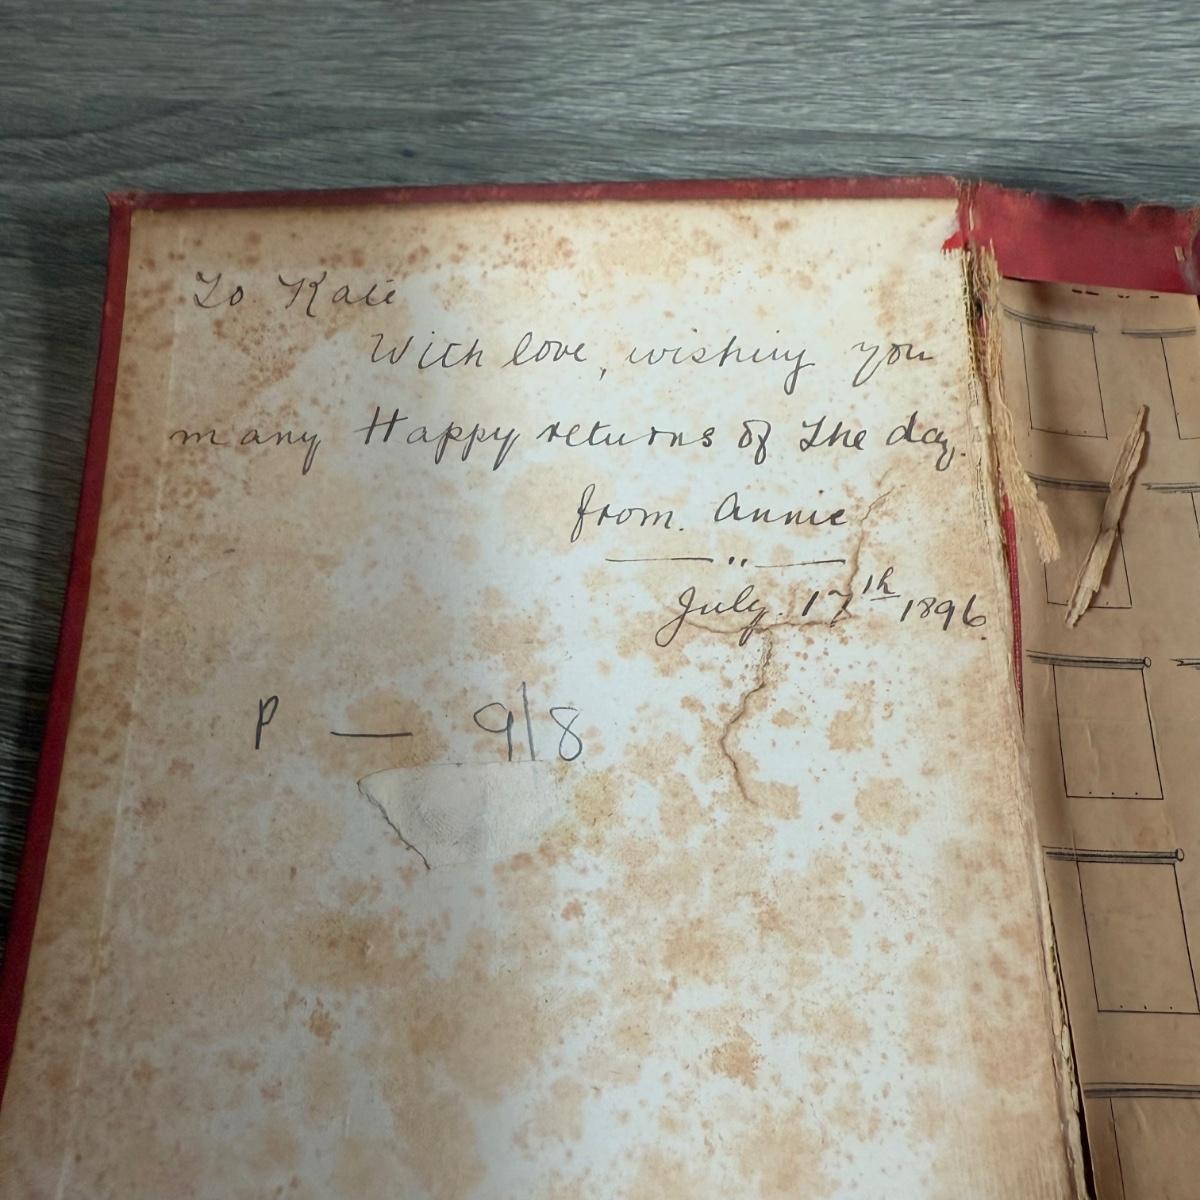 To Kate
With love, wishing you
many Happy returns of the day.
from. Annie
July. 17th 1896.
P — 9/8